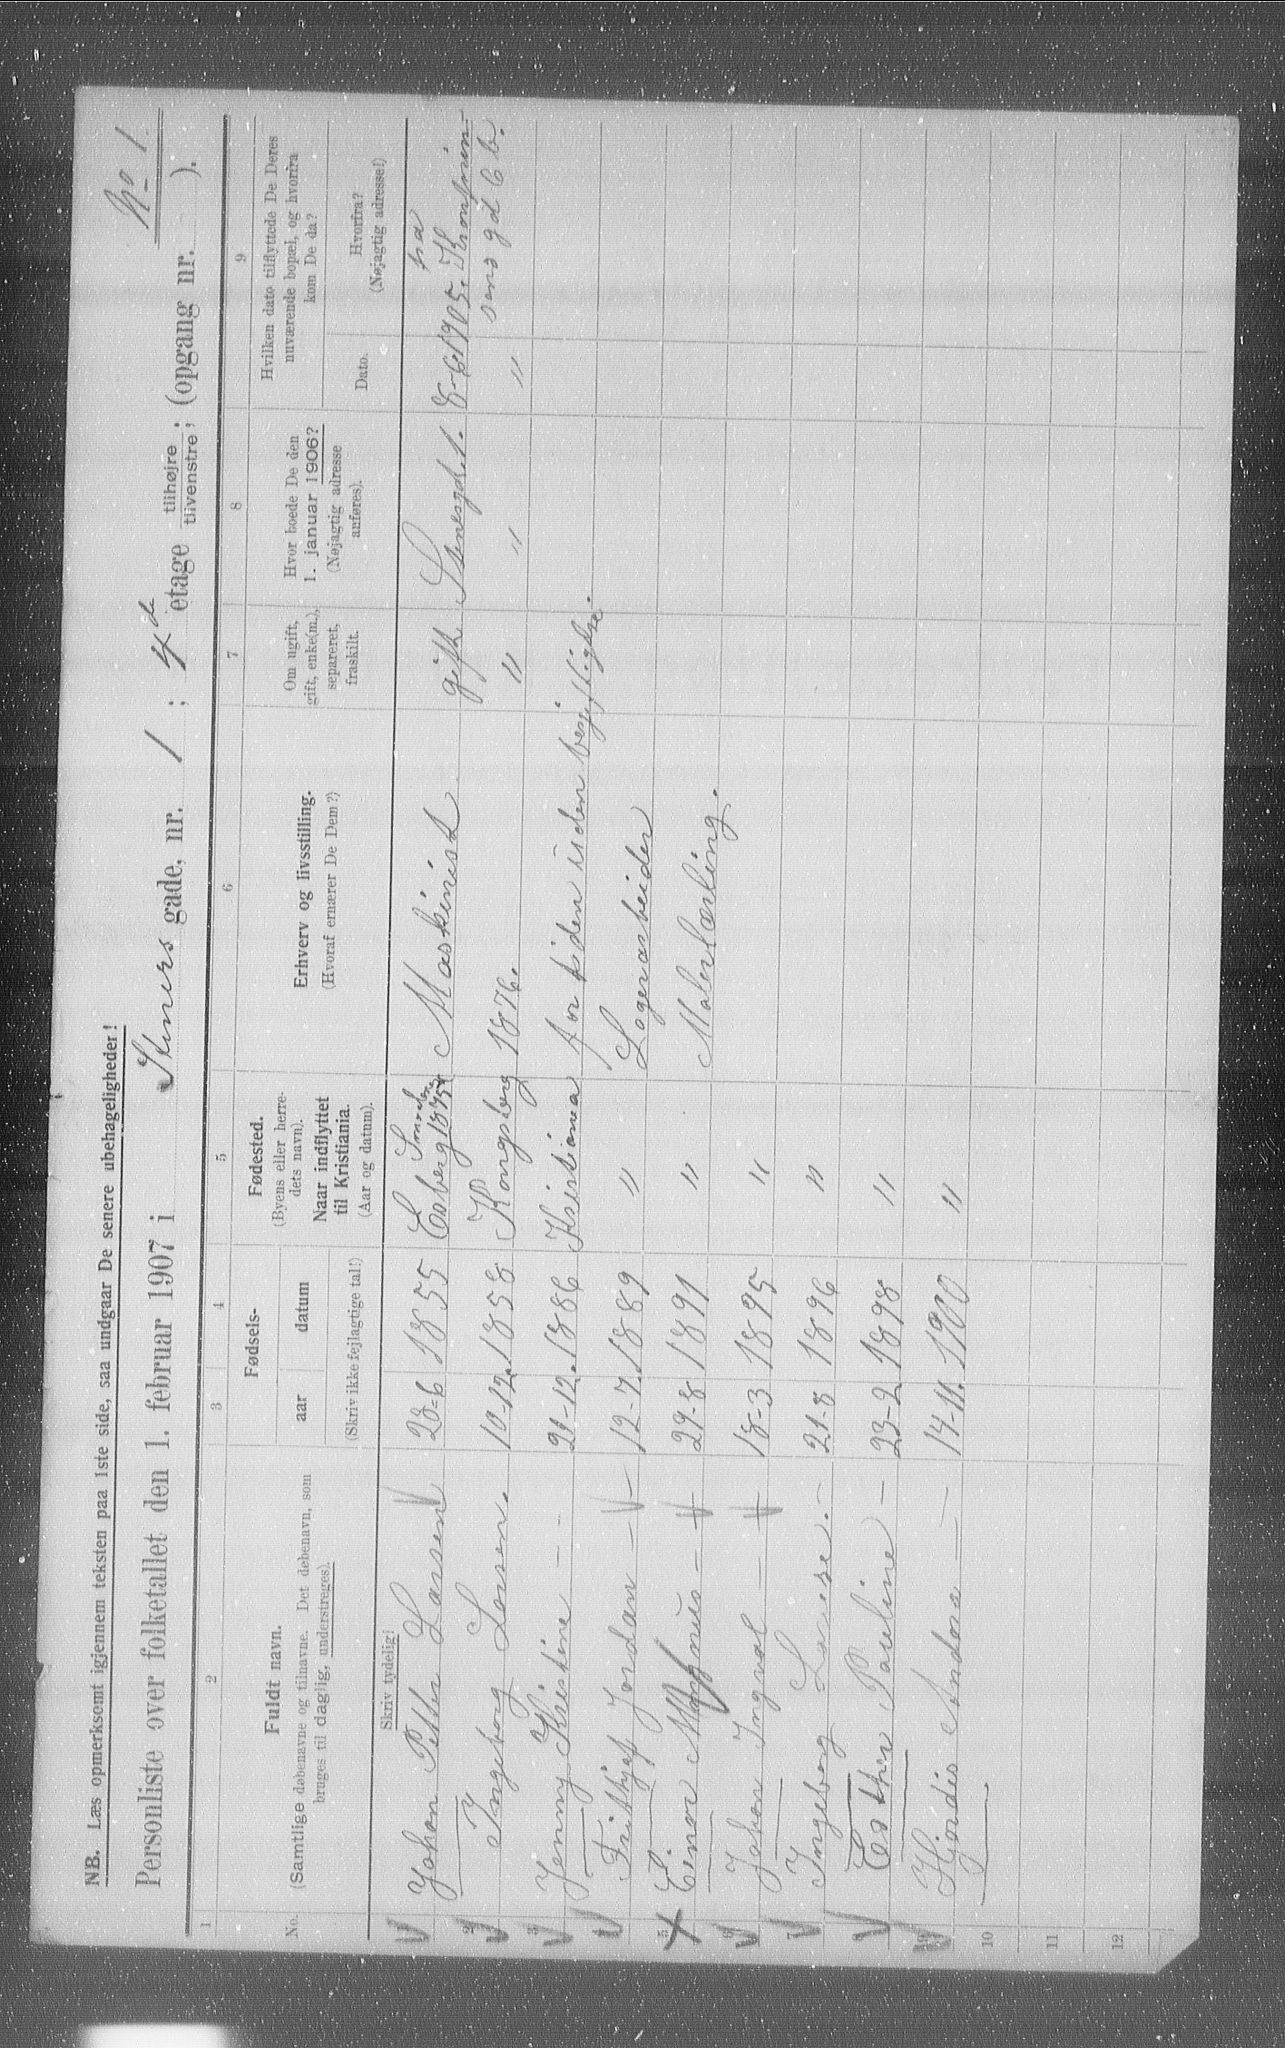 No 1.
NB. Læs opmerksomt igjennem teksten paa 1ste side, saa undgaar De senere ubehageligheder!
Personliste over folketallet den 1. februar 1907 i Steners gade, nr. 1 ; 4de etage tilhøjre ; tilvenstre ; (opgang nr. ).
1 2 3 4 5 6 7 8 9
No. Fuldt navn. (Samtlige døbenavne og tilnavne. Det døbenavn, som bruges til daglig, understreges).
Fødsels-
aar datum
(Skriv ikke fejlagtige tal!)
Fødested. (Byens eller herredets navn). Naar indflyttet til Kristiania. (Aar og datum).
Erhverv og livsstilling. (Hvoraf ernærer De Dem?)
Om ugift, gift, enke(m.), separeret, fraskilt.
Hvor boede De den 1. januar 1906? (Nøjagtig adresse anføres).
Hvilken dato tilflyttede De Deres nuværende bopæl, og hvorfra kom De da?
Dato. Hvorfra? (Nøjagtig adresse!)
Skriv tydelig!
Johan Petter Larsen 28-6 1855 Maskinist gift Stenersgd. 1. 8-6 1905. fra Kronprinsens gd 6 b.
2 Ingeborg Larsen. 10-12. 1858 Kongsberg 1876. " " "
3 Jenny Kristine — 21-12. 1886 Kristiania for tiden uden beskjæftigelse.
Frithjof Jordan — 12-7. 1889 " Lagerarbeider
5 Einar Magnus — 29-8 1891 " Malerlærling.
6 Johan Ingval — 18-3 1895 "
7 Ingeborg Lovise. — 21-8 1896 "
8 Esther Pauline — 23-2 1898 "
9 Hjørdis Andora — 14-11. 1900 "
10
11
12